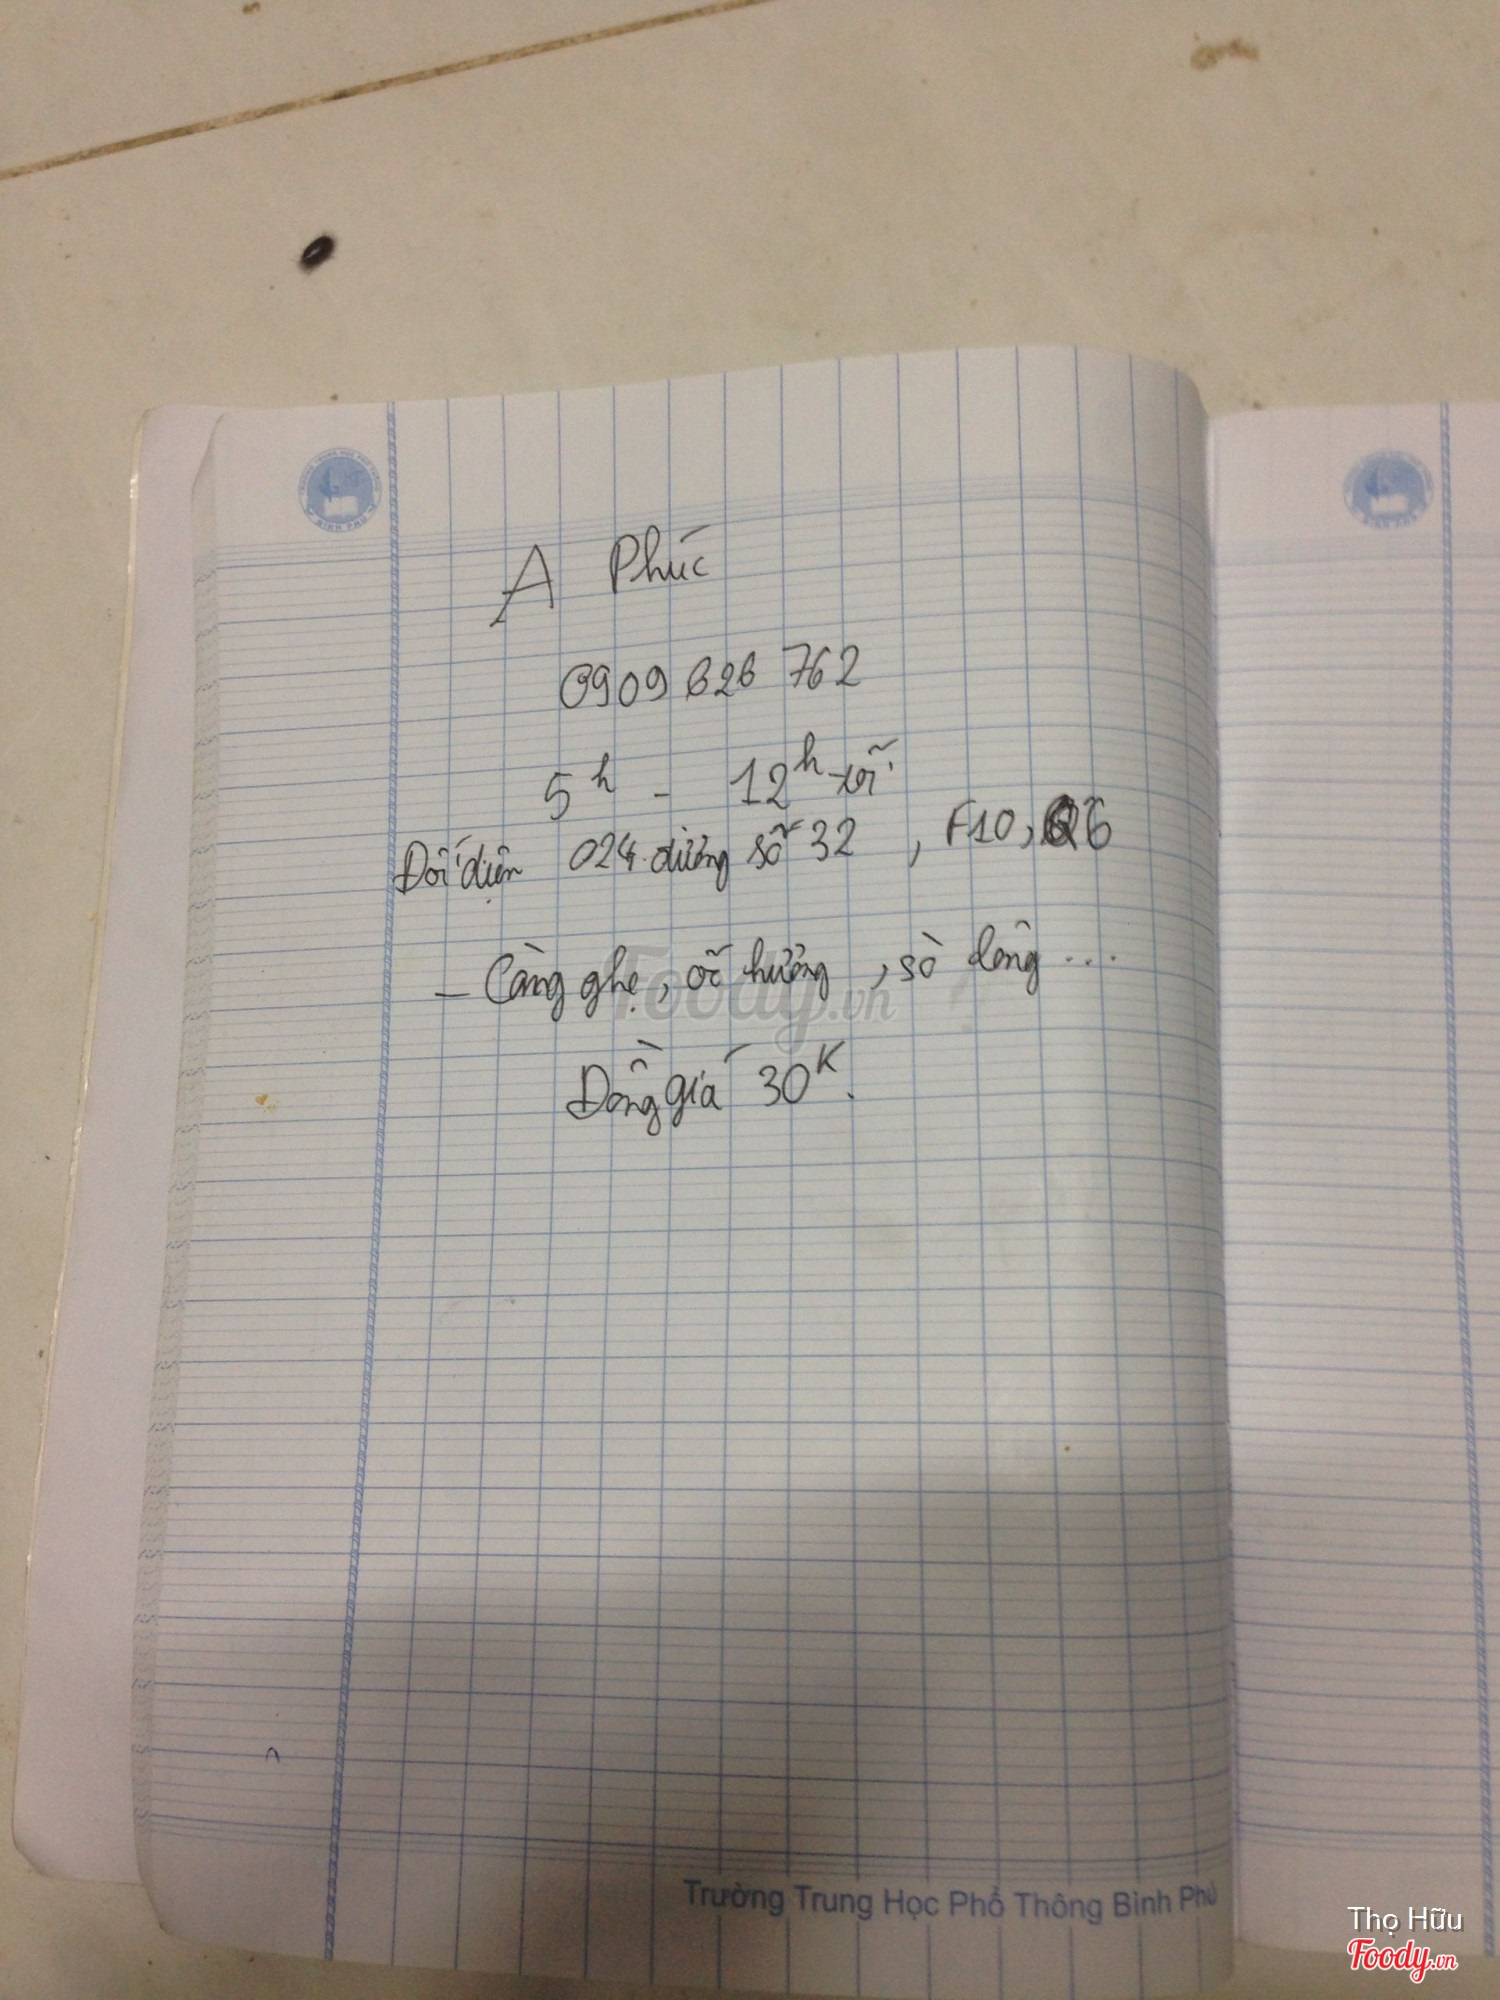 A Phúc
0909 626 762
5h - 12h tối
Đối diện 024 đường số 32, F10, Q6
- Càng ghẹ, ốc hương, sò lông ...
Đồng giá 30K.
Foody.vn
Trường Trung Học Phổ Thông Bình Phú
Thọ Hữu
Foody.vn